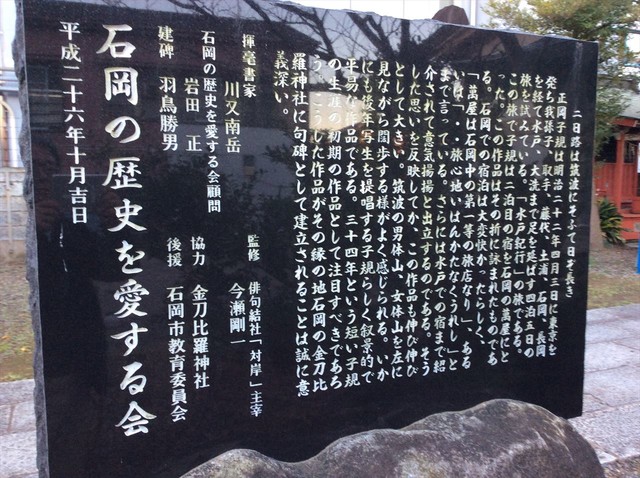 二日路は筑波にそふて日ぞ長き
正岡子規は明治二十二年四月三日に東京を
発ち我孫子、取手、藤代、土浦、石岡、長岡
を経て水戸、大洗まで足を延ばす四泊五日の
旅を試みている。「水戸紀行」の旅である。
この旅で子規は二泊目の宿を石岡の萬屋にと
った。この作品はその折に詠まれたものであ
る。石岡での宿泊は大変快かったらしく、
「萬屋は石岡中の第一等の旅店なり」、ある
いは「・・旅心地いはんかたなくうれし」と
まで言っている。さらには水戸での宿まで紹
介されて意気揚揚と出立するのである。そう
した思いを反映してか、この作品も伸び伸び
として大きい。筑波の男体山、女体山を左に
見ながら闊歩する様がよく感じられる。いか
にも後年写生を提唱する子規らしく叙景的で
平易な作品である。三十四年という短い子規
の生涯の初期の作品として注目すべきであろ
う。こうした作品がその縁の地石岡の金刀比
羅神社に句碑として建立されることは誠に意
義深い。
監修 俳句結社「対岸」主宰
今瀬剛一
揮毫書家
川又南岳
石岡の歴史を愛する会顧問
岩田 正
協力 金刀比羅神社
建碑 羽鳥勝男
後援 石岡市教育委員会
石岡の歴史を愛する会
平成二十六年十月吉日